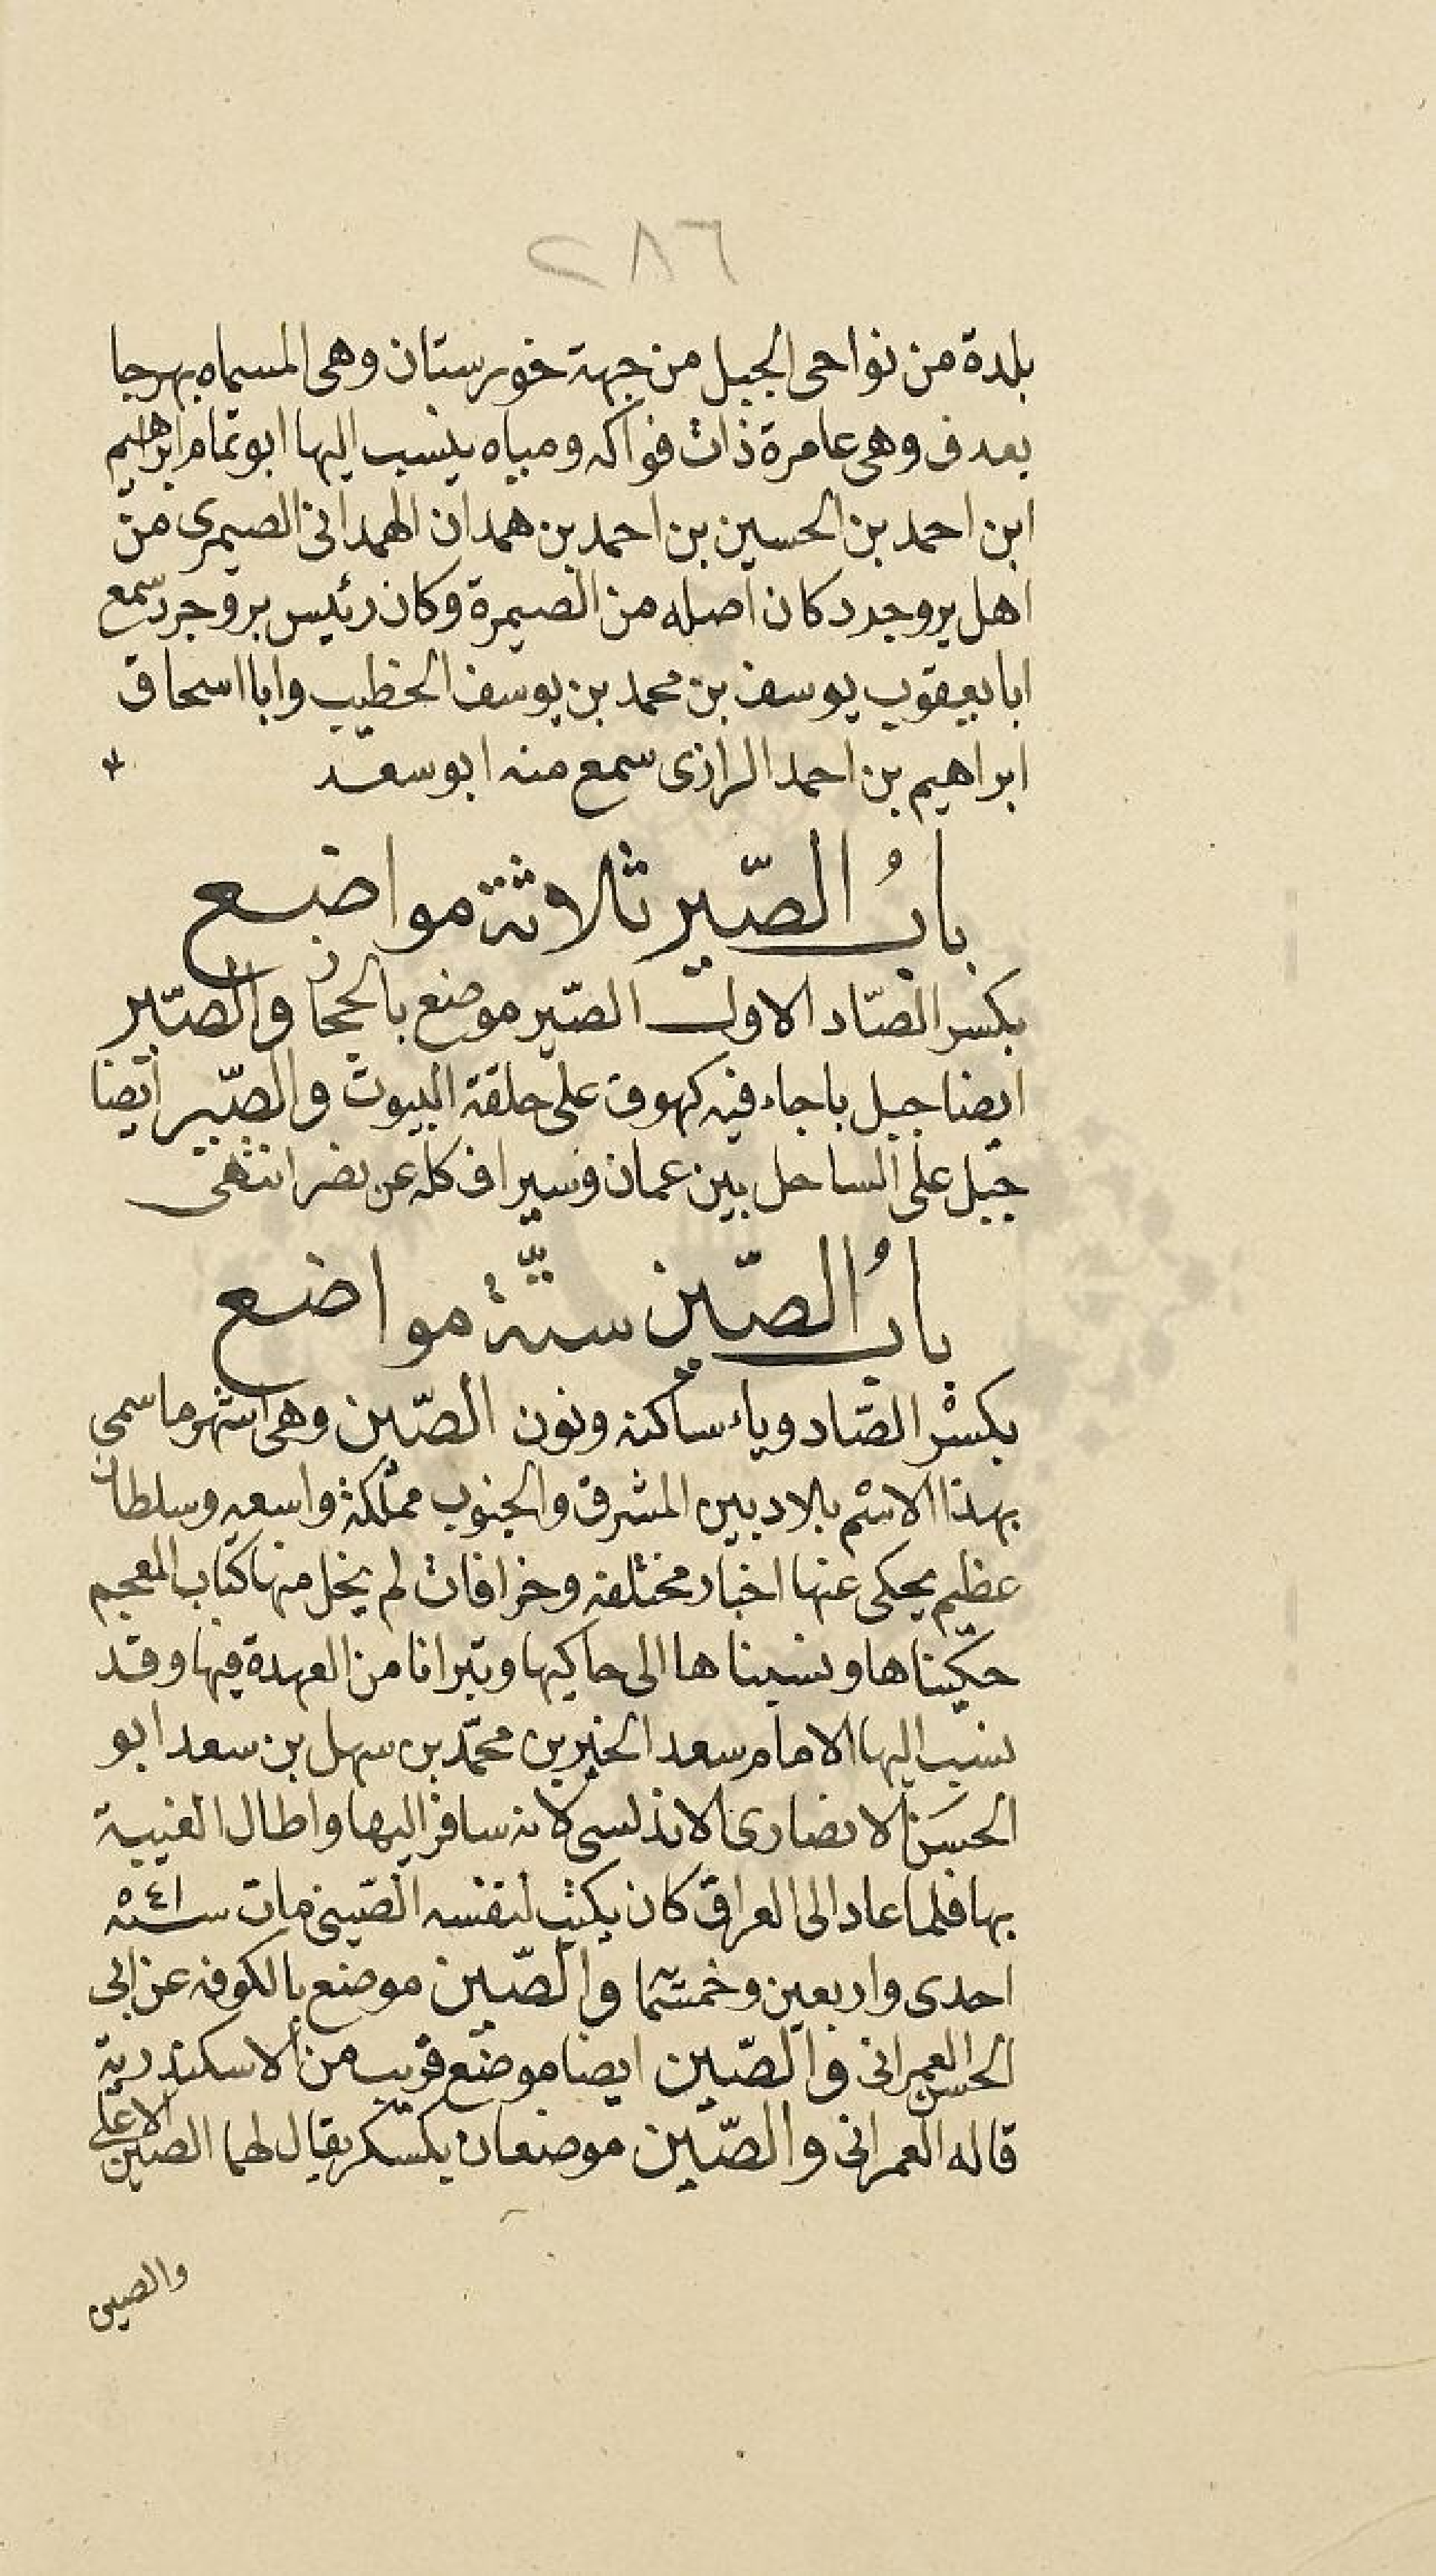 ٢٨٦
بلدة من نواحى الجبل من جهة خورستان وهى المسماه بهرجا
بعدف وهى عامرة ذات فواكه ومياه ينسب اليها ابو تمام ابرهيم
ابن احمد بن الحسين بن احمد بن همدان الهمدانى الصيمرى من
اهل بروجدد كان اصله من الصيمرة وكان رئيس بروجرد سمع
ابا يعقوب يوسف بن محمد بن يوسف الخطيب وابا اسحاق
ابراهيم بن احمد الرازى سمع منه ابو سعد
بابُ الصّير ثلاثة مواضع
بكسر الصّاد الاول الصّير موضع بالحجاز والصّير
ايضا جبل باجاء فيه كهوف على حلقة البيوت والصّير ايضا
جبل على الساحل بين عمان وسيراف كله عن نصر انتهى
بابُ الصّين ستّة مواضع
بكسْر الصّاد وياء ساكنه ونون الصّين وهى اشهر ما سمى
بهذا الاسْم بلاد بين المشرق والجنوب مملكة واسعه وسلطان
عظيم يحكى عنها اخبار مختلفه وخرافات لم يخل منها كتاب المعجم
حكيناها ونسبناها الى حاكيها وتبرانا من العهدة فيها وقد
نسب اليها الامام سعد الخير بن محمّد بن سهل بن سعد ابو
الحسَن الانصارى الاندلسى لانه سافر اليها واطال الغيبة
بها فلما عاد الى العراق كان يكتب لنفسه الصّينى مات سنة ٥٤١
احدى واربعين وخمسّما والصّين موضع بالكوفه عن ابى
الحسن العمرانى والصّين ايضا موضع قريب من الاسكندرية
قاله العمرانى والصّين موضعان بكسكر يقال لهما الصين الاعلى
والصين